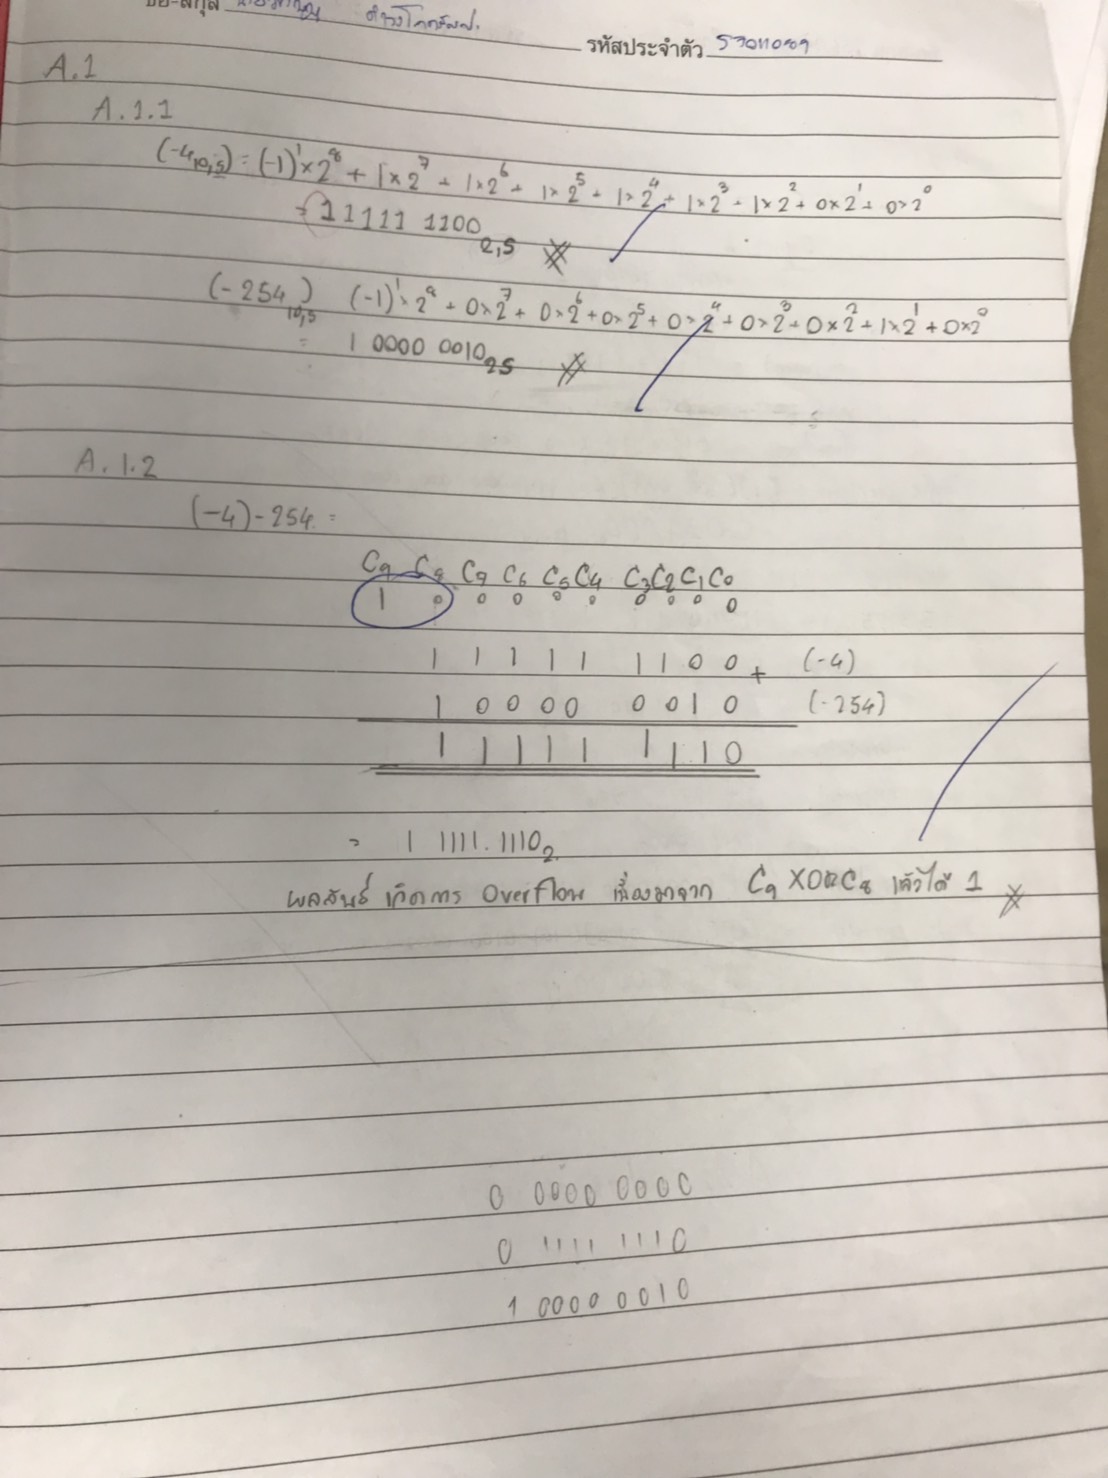 ชื่อ-สกุล
รหัสประจำตัว
A.1
A.1.1
(-4₁₀,ₛ) = (-1)¹×2⁸ + 1×2⁷ + 1×2⁶ + 1×2⁵ + 1×2⁴ + 1×2³ + 1×2² + 0×2¹ + 0×2⁰
= 11111 1100₂,ₛ
(-254)₁₀,ₛ (-1)¹×2⁸ + 0×2⁷ + 0×2⁶ + 0×2⁵ + 0×2⁴ + 0×2³ + 0×2² + 1×2¹ + 0×2⁰
= 1 0000 0010₂ₛ
A.1.2
(-4)-254 =
C₉ C₈ C₇ C₆ C₅ C₄ C₃ C₂ C₁ C₀
1 0 0 0 0 0 0 0 0 0
1 1 1 1 1 1 1 0 0 + (-4)
1 0 0 0 0 0 0 1 0 (-254)
1 1 1 1 1 1 1 1 0
= 1 1111.1110₂
ผลลัพธ์ เกิดการ Overflow เนื่องมาจาก C₉ XOR C₈ แล้วได้ 1
0 0000 0000
0 1111 1110
1 0000 0010